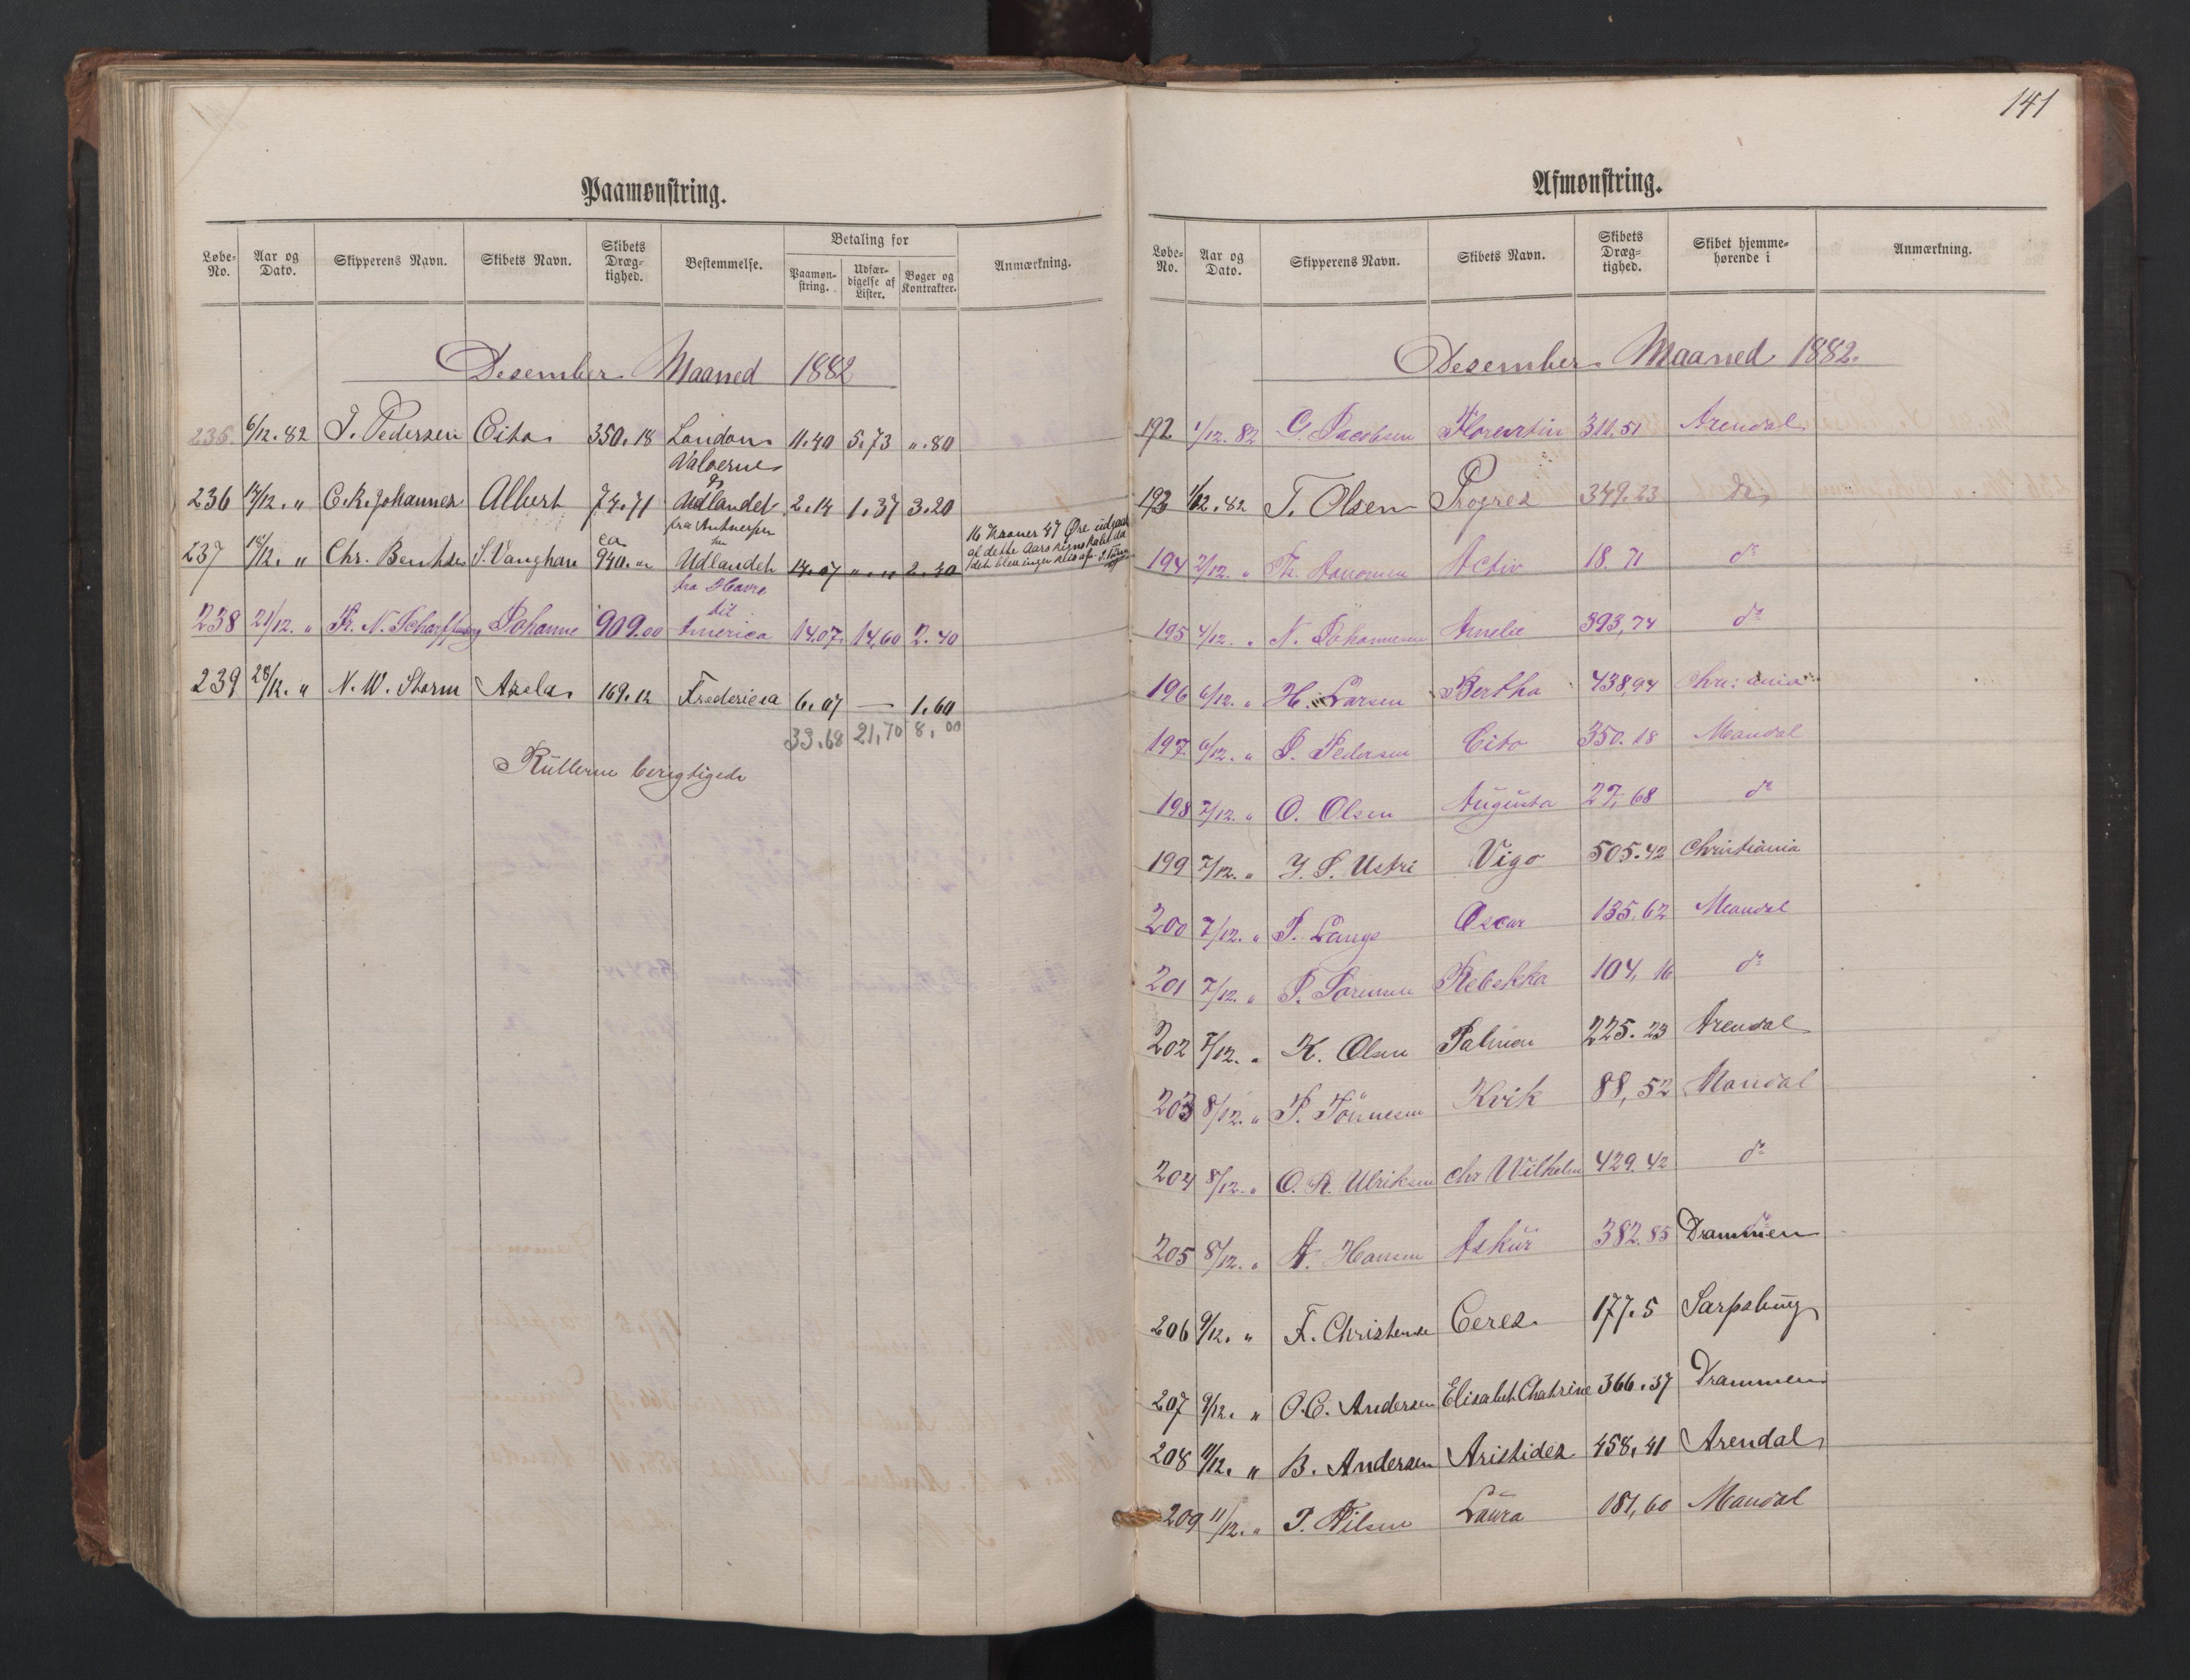 141
Paamønstring.
Løbe-No. Aar og Dato. Skipperens Navn. Skibets Navn. Skibets Dræg-tighed. Bestemmelse. Betaling for Anmærkning.
Paamøn-string. Udfær-digelse af Lister. Bøger og Kontrakter.
Desember Maaned 1882
235. 6/12. 82 J. Pedersen Cito 350.18 London 11.40 5.73 ".80
Valoerne
og
236 14/12. " C.R. Johannes Albert 74.71 Udlandet 2.14 1.37 3.20
fra Antwerpen
16 Kroner 47 Øre udgaar
af dette Aars Regnskab da
237 18/12. " Chr. Bentsen S. Vaughan ca 940. " Udlandet 14.07 "." 2.40
fra Havre
til
238 21/12. " Fr. N. Scharffenberg Johanne 909.00 America 14.07. 14,60 2.40
239 28/12. " N. W. Storm Axela 169.12 Fredericia 6.07 — 1.60
33.68 21,70 8,00
Rullerne berigtigede
Afmønstring.
Løbe-No. Aar og Dato. Skipperens Navn. Skibets Navn. Skibets Dræg-tighed. Skibet hjemme-hørende i Anmærkning.
Desember Maaned 1882.
192 1/12. 82 G. Jacobsen Florentin 311,51 Arendal
193 1/12. 82 T. Olsen Progres 349.23 do
194 2/12. " Th. Aanonsen Activ 18.71 do
195 4/12. " N. Johannesen Amelie 393,74 do
196 6/12. " H. Larsen Bertha 438,94 Chri:ania
197. 6/12. " J. Pedersen Cito 350.18 Mandal
198 7/12. " O. Olsen Augusta 27,68 do
199 7/12. " Y. S. Ustri Vigo 505.42 Christiania
200 7/12. " P. Lange Oscar 135.62 Mandal
201 7/12. " P. Sørensen Rebekka 104,16 do
202 7/12. " K. Olsen Palmen 225.23 Arendal
203 8/12. " P. Tönnesen Kvik 88,52 Mandal
204 8/12. " O. R. Ulriksen Chr Wilhelm 429.42 do
205 8/12. " A. Hansen Askur 382.85 Drammen
206 9/12. " F. Christense Ceres 177.5 Sarpsburg
207 9/12. " O.C. Andersen Elisabet Chatrine 366.37 Drammen
208 9/12. " B. Andersen Aristides 458,41 Arendal
209 11/12. " P. Nilsen Laura 181,60 Mandal